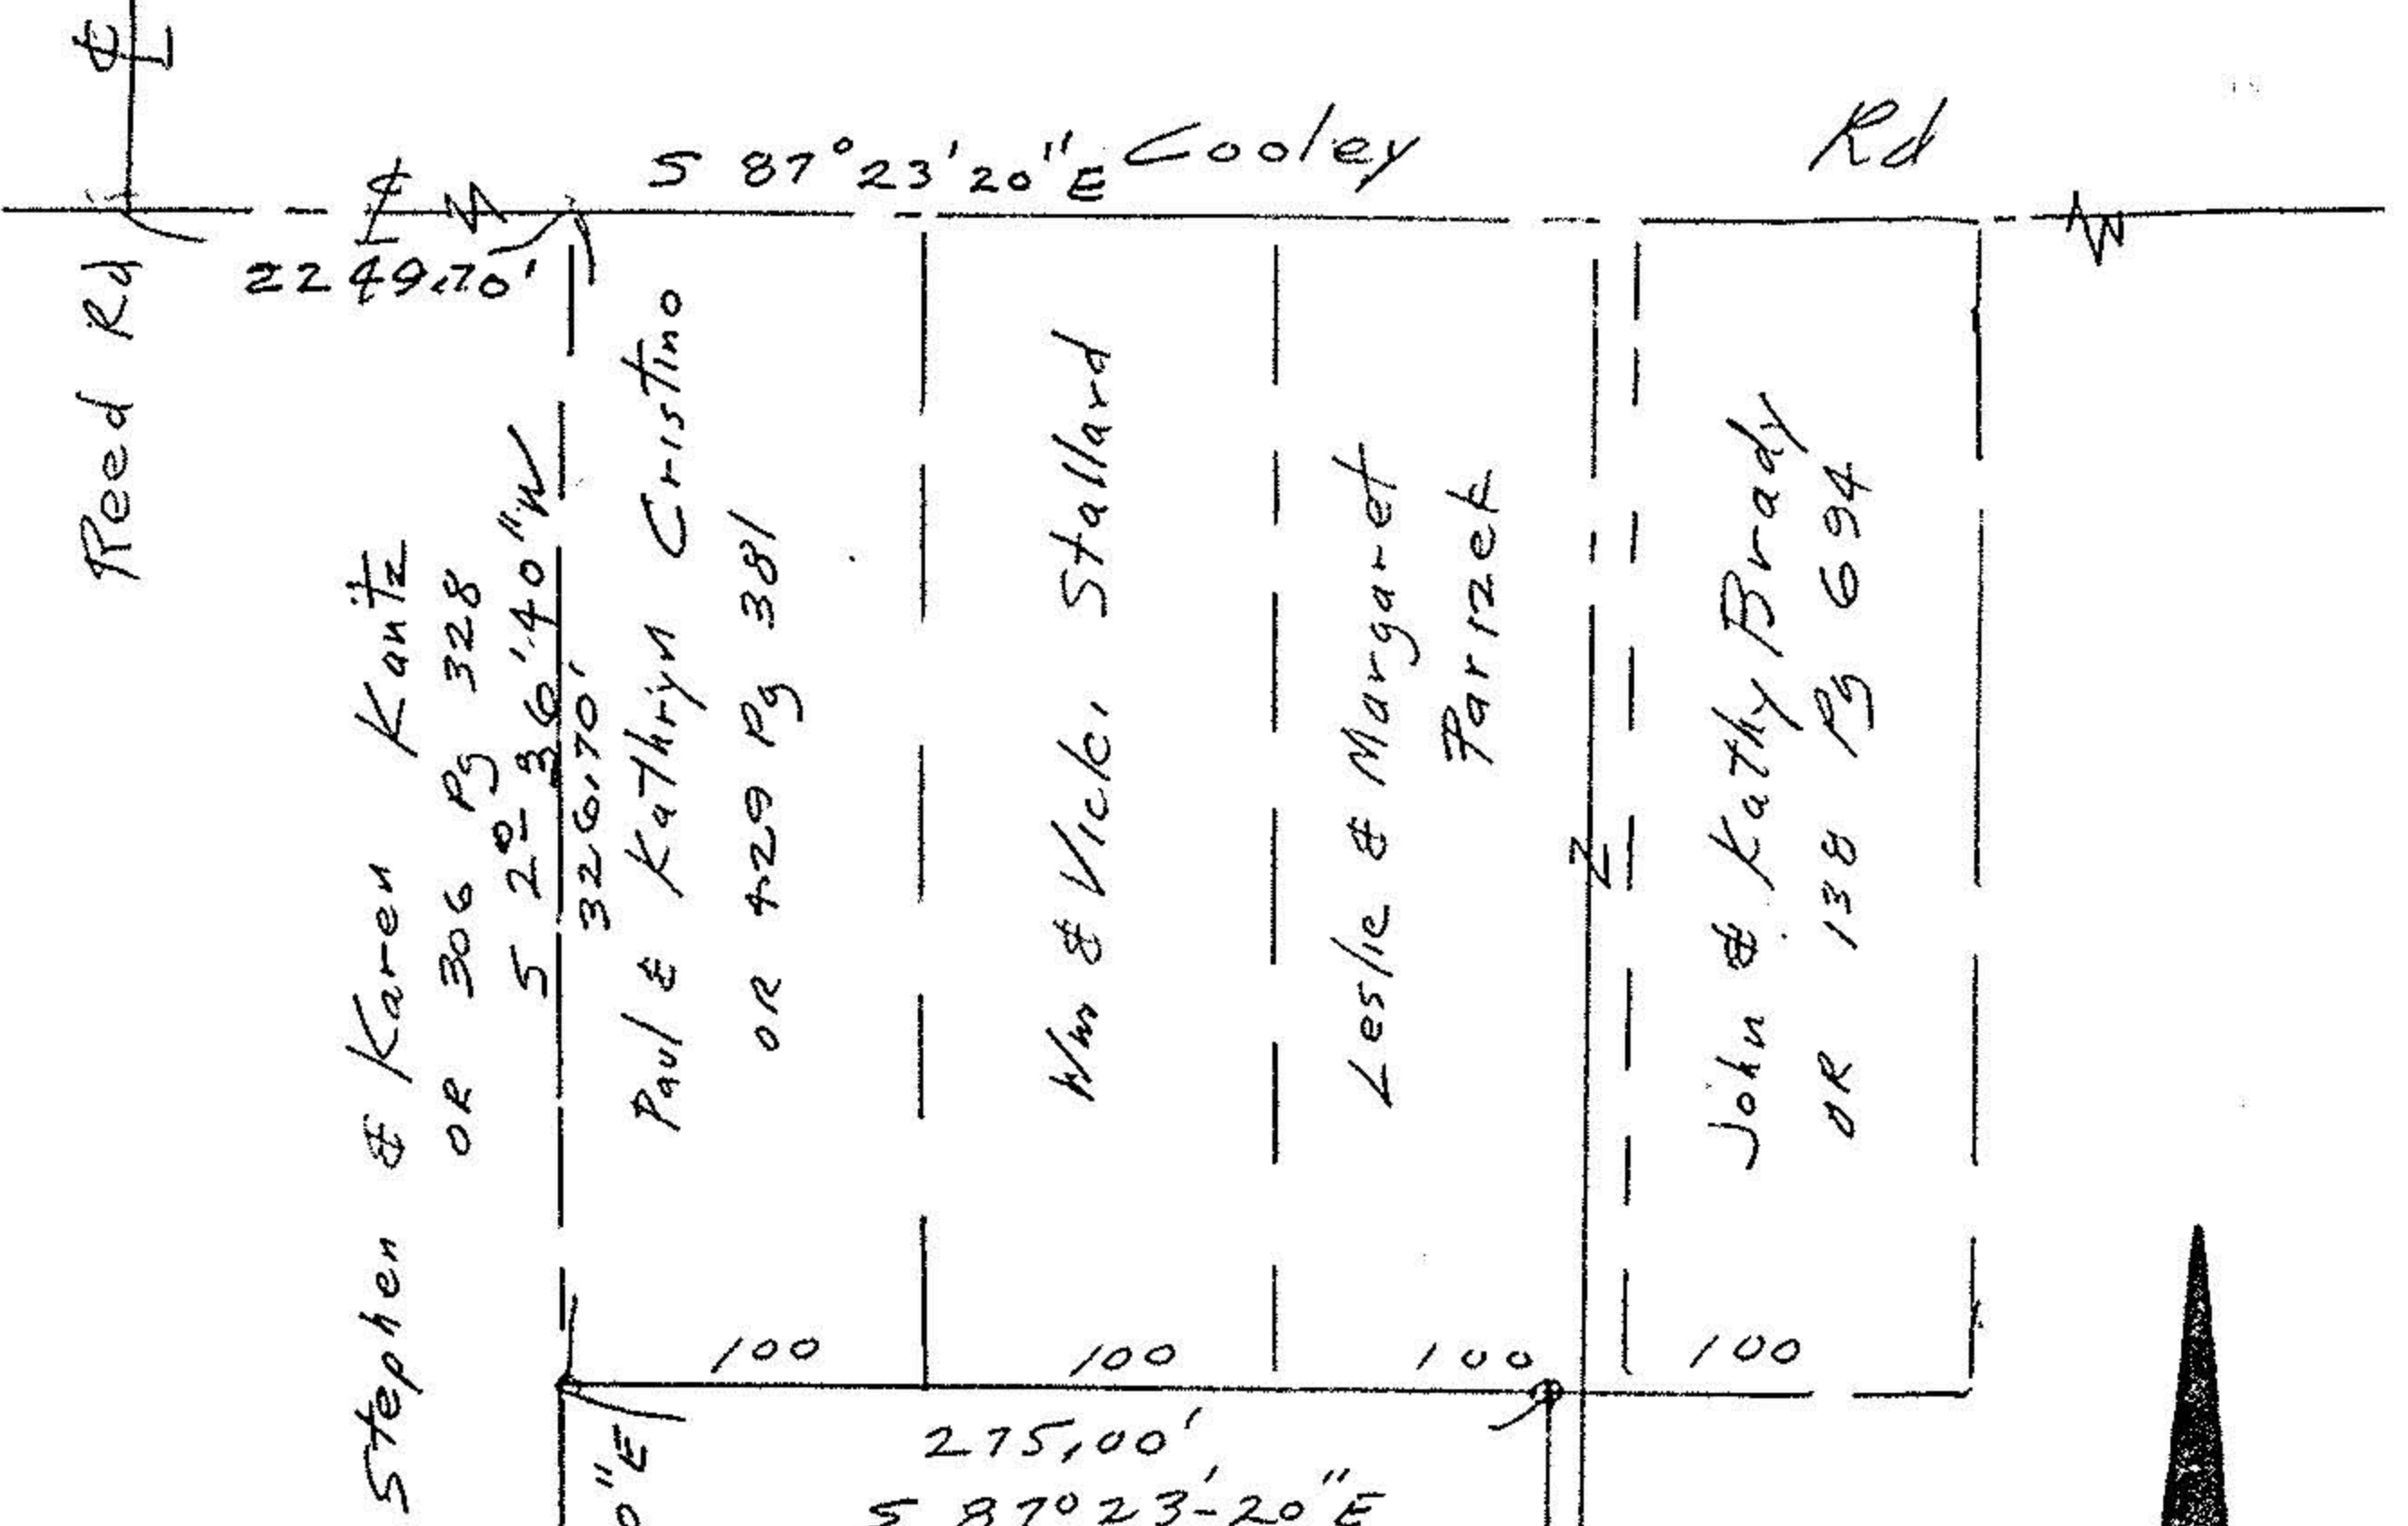 ℄
S 87°23'20"E Cooley Rd
℄
2249.70'
Reed Rd
Stephen & Karen Kantz
OR 306 Pg 328
S 2°-36'-40"W
326.70'
Paul & Kathryn Cristino
OR 429 Pg 381
Wm & Vicki Stallard
Leslie & Margaret
Parizek
Z
John & Kathy Brady
OR 138 Pg 694
100
100
100
100
275.00'
S 87°23'-20"E
0"E